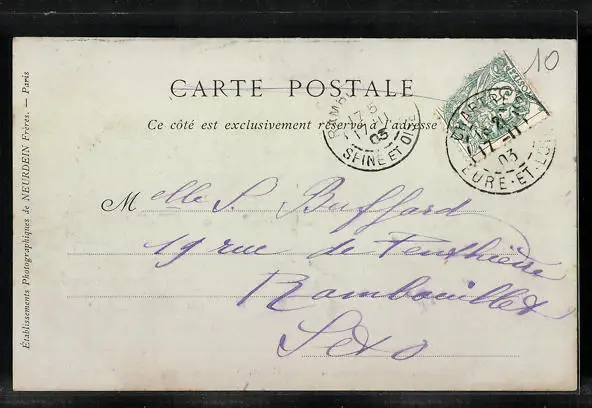 10
CARTE POSTALE
Ce côté est exclusivement réservé à l'adresse
RAMB
17 -11
03
SEINE ET OISE
CHARTRES
17 - 11
03
EURE-ET-LOIR
Melle S. Buffard
19 rue de Penthièvre
Rambouillet
S et O
Établissements Photographiques de NEURDEIN Frères. — Paris